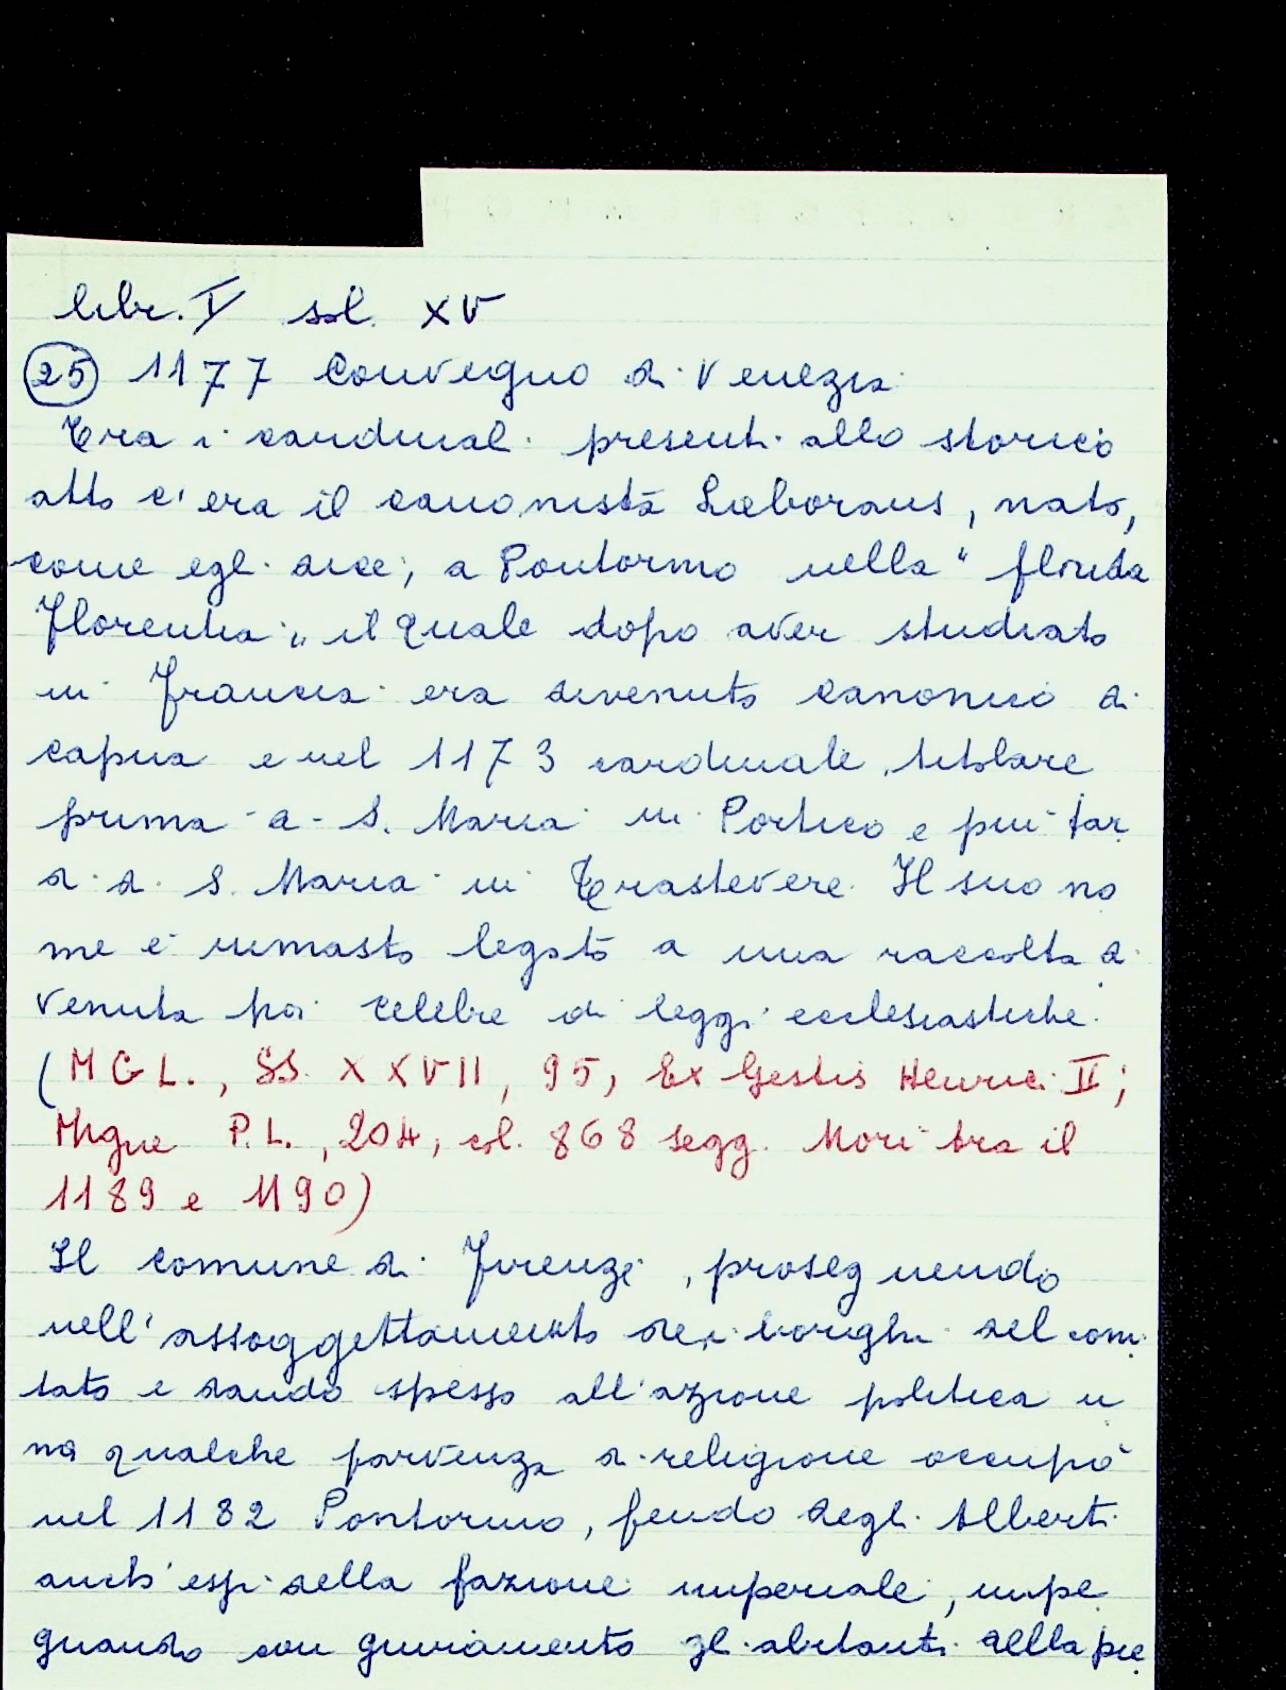 libr. V sol. XV
25 1177 Convegno di Venezia
Tra i cardinali presenti allo storico
atto c'era il canonista Laborans, nato,
come egli dice, a Pontormo nella "florida
Florentia", il quale dopo aver studiato
in Francia era divenuto canonico di
Capua e nel 1173 cardinale, titolare
prima a S. Maria in Portico e più tar
di di S. Maria in Trastevere. Il suo no
me è rimasto legato a una raccolta di
venuta poi celebre di leggi ecclesiastiche.
(M G L., SS. XXVII, 95, Ex Gestis Henrici II;
Migne P.L., 204, col. 868 segg. Morì tra il
1189 e 1190)
Il comune di Firenze, proseguendo
nell'assoggettamento dei borghi del comi
tato e dando spesso all'azione politica u
na qualche parvenza di religione occupò
nel 1182 Pontormo, feudo degli Alberti
anch'essi della fazione imperiale, impe
gnando con giuramento gli abitanti della pie